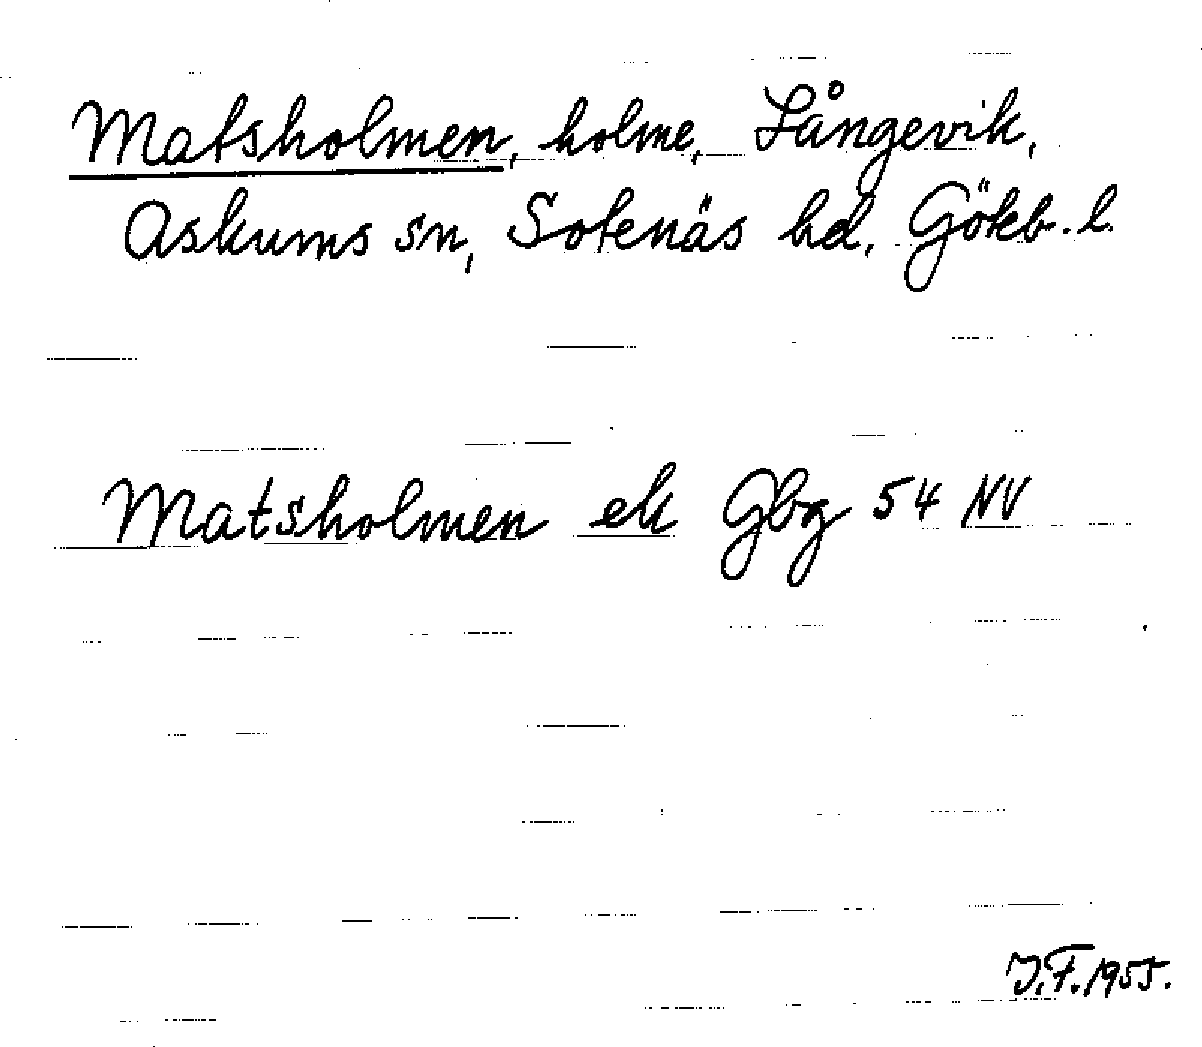 Matsholmen, holme, Långevik,
Askums sn, Sotenäs hd. Götkb. l.
Matsholmen ek Gbg 54 NV
J.F. 1955.